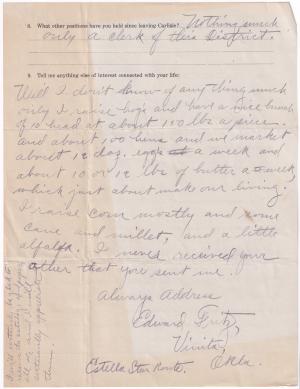 8. What other positions have you held since leaving Carlisle? Nothing much
only a clerk of this District.
9. Tell me anything else of interest connected with your life:
Well I don't know of any thing much
only I raise hogs and have a nice bunch
of 10 head at about 150 lbs a piece.
and about 100 hens and we market
about 12 doz. eggs a week and
about 10 or 12 lbs of butter a week,
which just about make our living.
I raise corn mostly and some
cane and millet, and a little
alfalfa. I never received your
other that you sent me.
Always Address
Edward Fritz,
Vinita,
Estella Star Route. Okla.